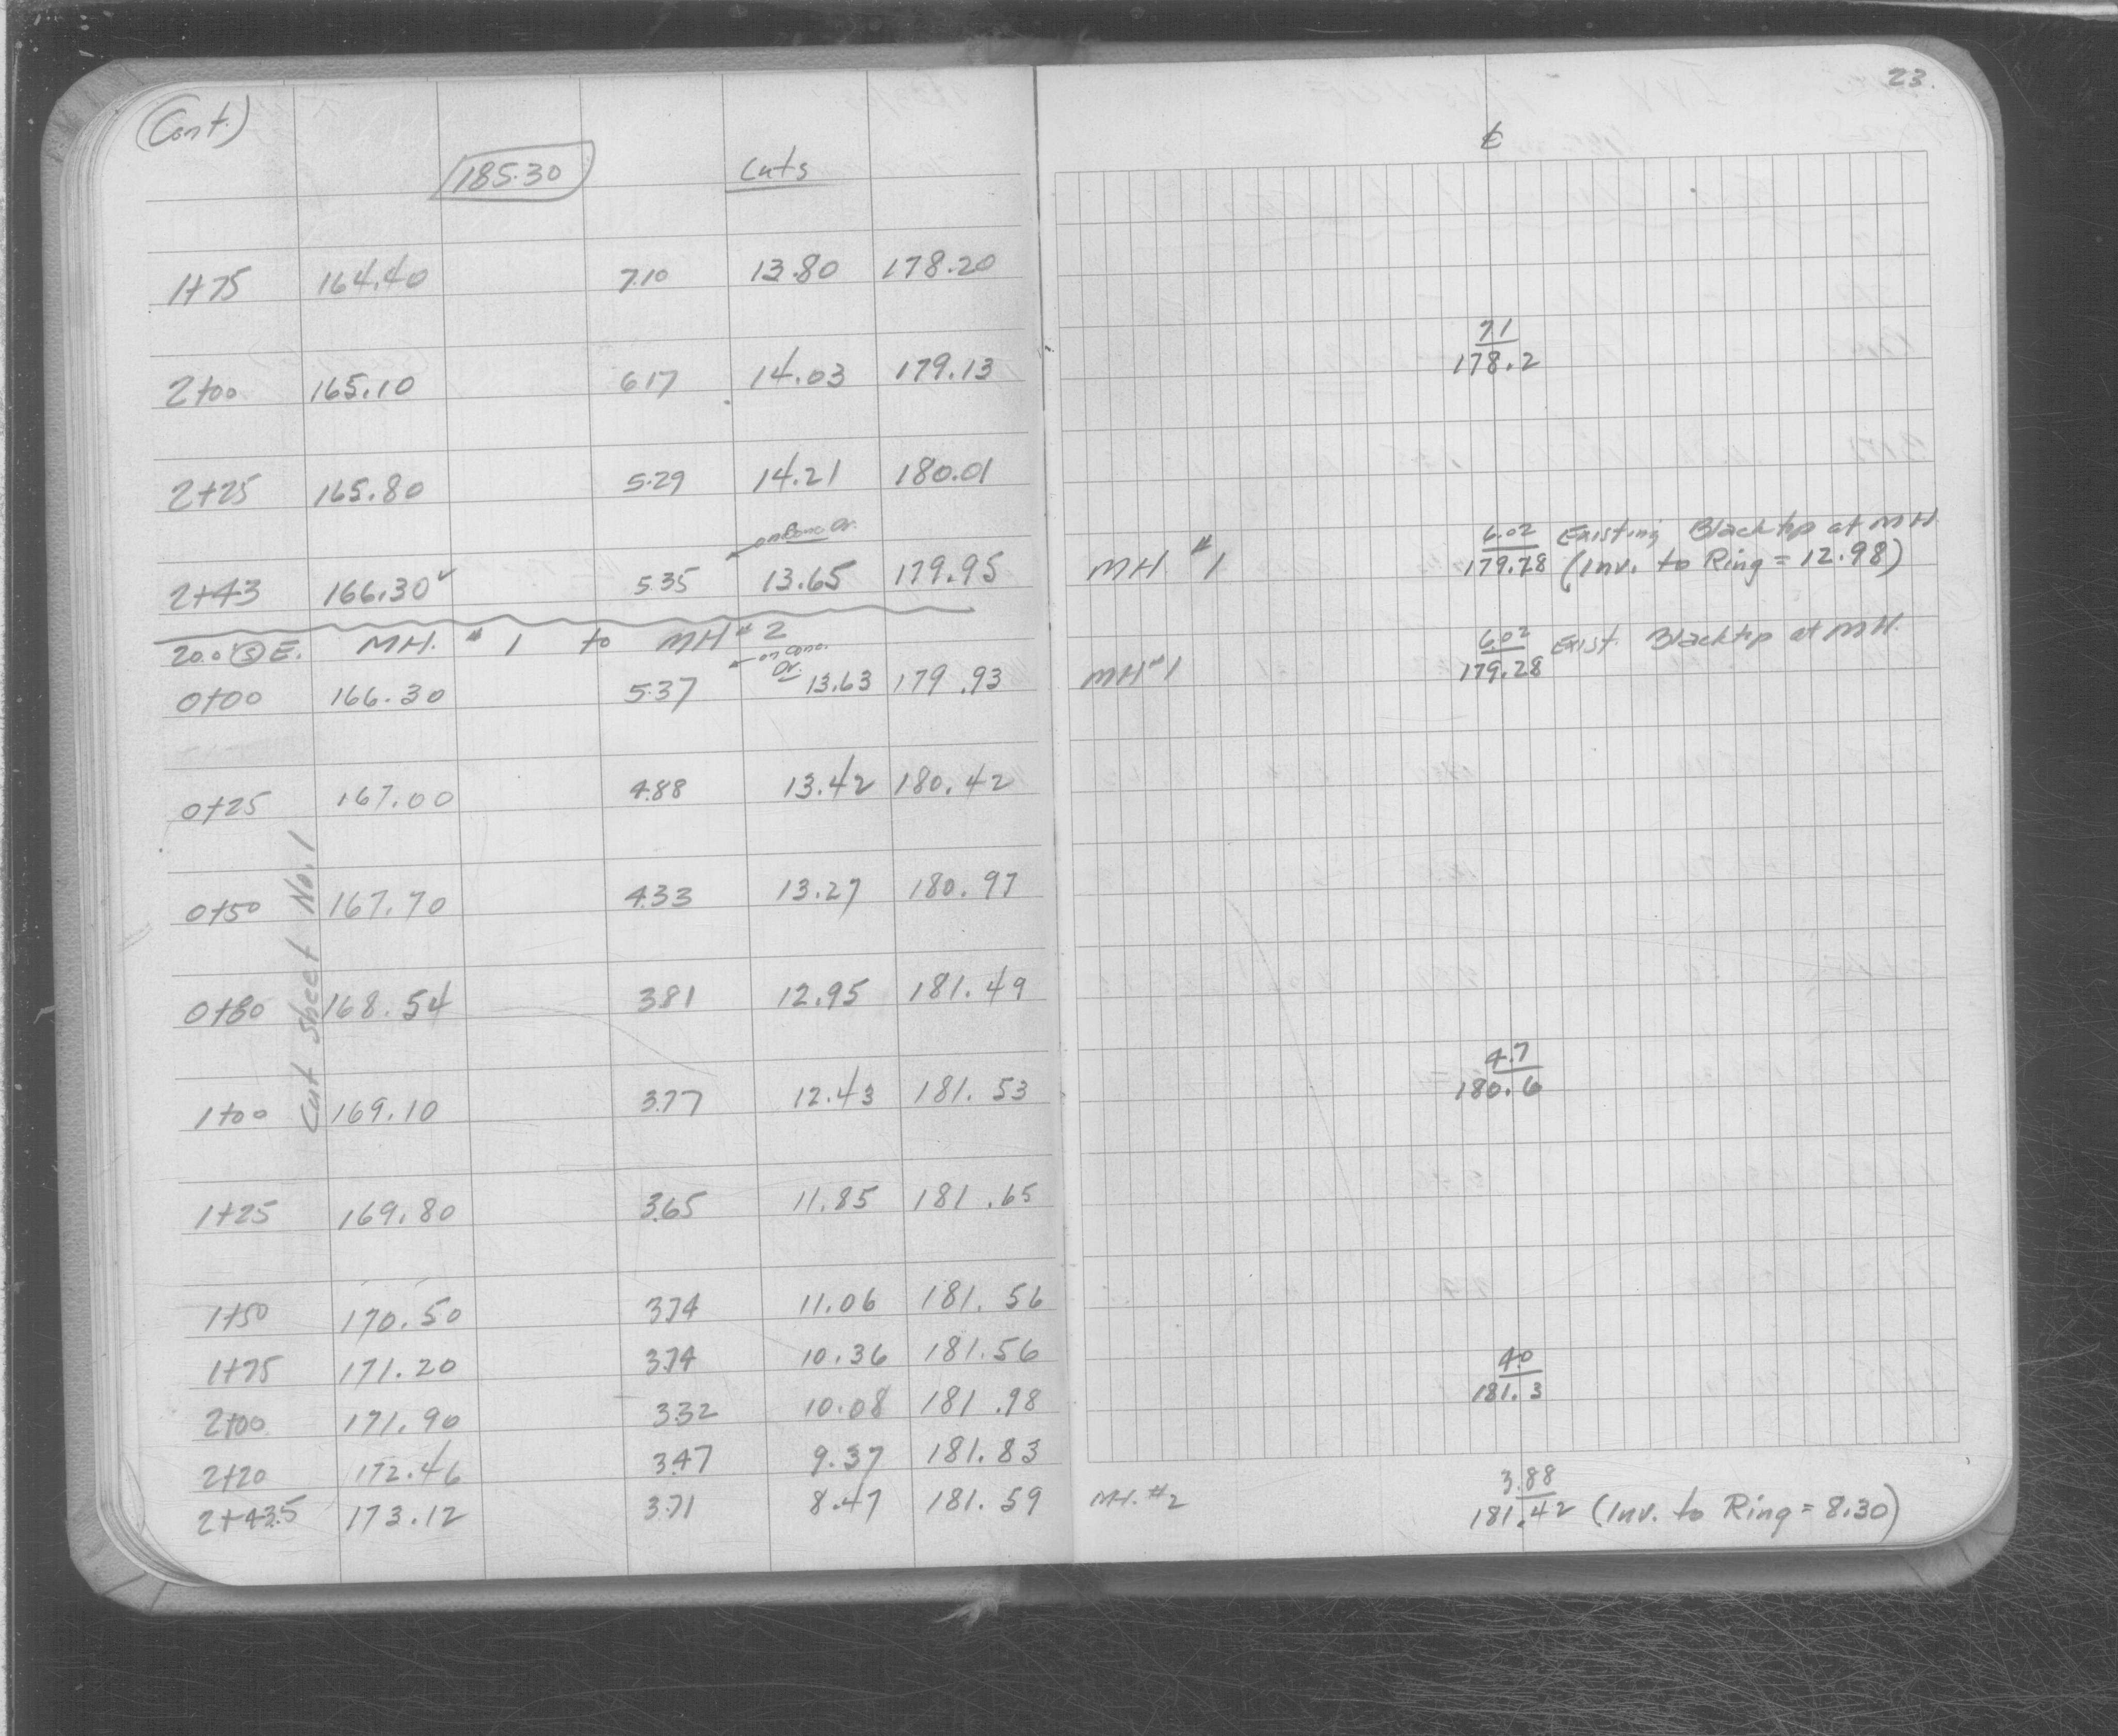 (Cont.)
185.30 Cuts
1+75 164.40 7.10 13.80 178.20
2+00 165.10 6.17 14.03 179.13
2+25 165.80 5.29 14.21 180.01
on Conc Dr.
2+43 166.30✓ 5.35 13.65 179.95
20.0 (S) E. MH. #1 to MH #2
on conc. Dr.
0+00 166.30 5.37 13.63 179.93
0+25 167.00 4.88 13.42 180.42
0+50 167.70 4.33 13.27 180.97
0+80 168.54 3.81 12.95 181.49
1+00 169.10 3.77 12.43 181.53
1+25 169.80 3.65 11.85 181.65
1+50 170.50 3.74 11.06 181.56
1+75 171.20 3.74 10.36 181.56
2+00 171.90 3.32 10.08 181.98
2+20 172.46 3.47 9.37 181.83
2+43.5 173.12 3.71 8.47 181.59
Cut Sheet No. 1
23.
℄
7.1
178.2
6.02 Existing Blacktop at MH
MH #1 179.28 (Inv. to Ring = 12.98)
6.02 Exist. Blacktop at MH.
MH #1 179.28
4.7
180.6
4.0
181.3
3.88
MH. #2 181.42 (Inv. to Ring = 8.30)